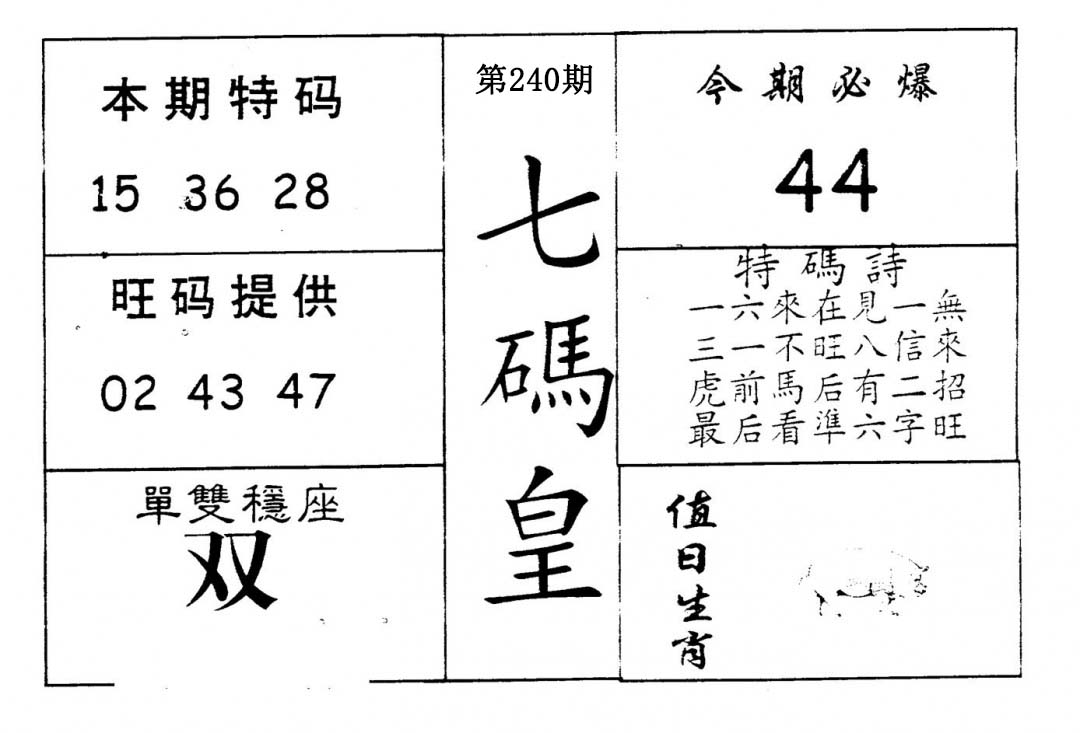 本期特码
15 36 28
旺码提供
02 43 47
單雙穩座
双
第240期
七碼皇
今期必爆
44
特碼詩
一六來在見一無
三一不旺八信來
虎前馬后有二招
最后看準六字旺
值日生肖